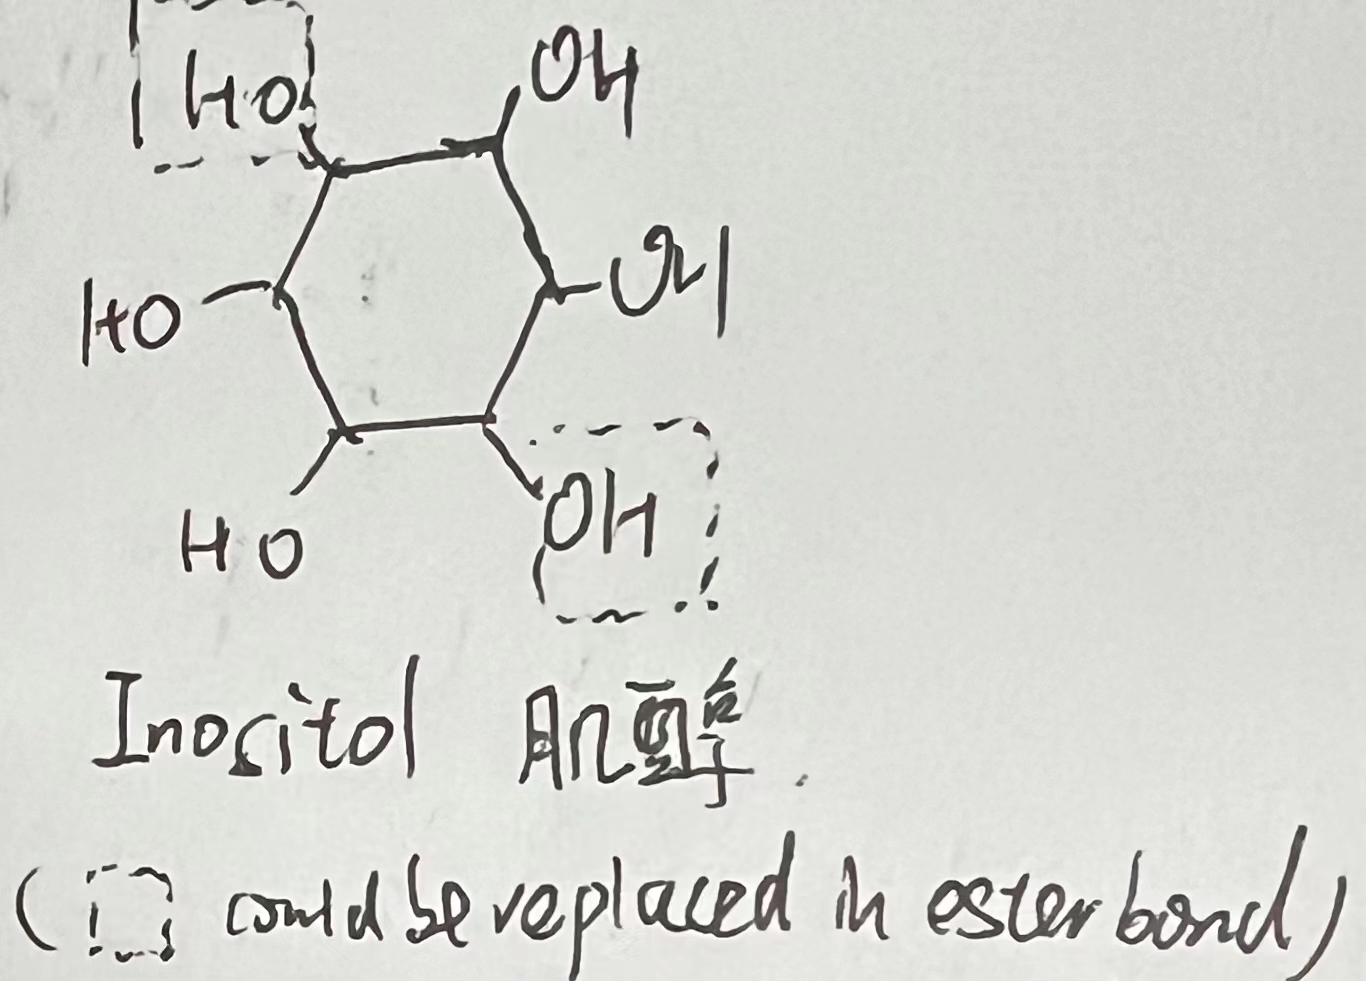 HO OH
HO OH
HO OH
Inositol 肌醇.
( could be replaced in ester bond)